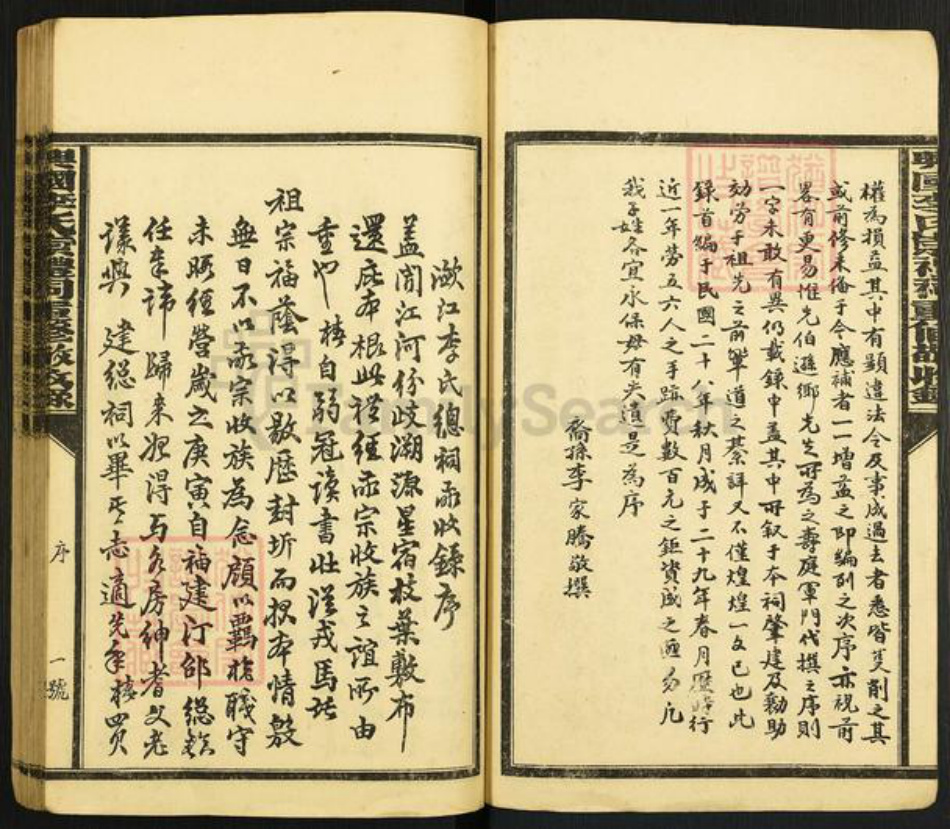 權為損益其中有顯違法令及事成過去者悉皆芟削之其
或前修未備于今應補者一一增益之即編列之次序亦視前
畧有更易惟先伯遜鄉先生所為之壽庭軍門代撰之序則
一字未敢有異仍載錄中蓋其中所叙于本祠肇建及勷助
効劳于祖先之前輩道之綦詳又不僅煌煌一文已也此
錄首編于民國二十八年秋月成于二十九年春月歷時行
近一年劳五六人之手跡費數百元之鉅貲成之匪易凡
我子姓各宜永保毋有失遺是為序
裔孫李家騰敬撰
潋江李氏總祠承收錄序
蓋聞江河份歧溯源星宿枝葉敷布
還庇本根此禮經承宗收族之誼所由
重也 椿自弱冠讀書壯從戎馬託
祖宗福蔭得以敭歷封圻而根本情殷
無日不以承宗收族為念顧以羈於職守
未暇經營歲之庚寅自福建汀邵總鎮
任奉諱歸來獲得与各房紳耆父老
議興 建總祠以畢其志適先年椿買
興國李氏
序
一號
FamilySearch